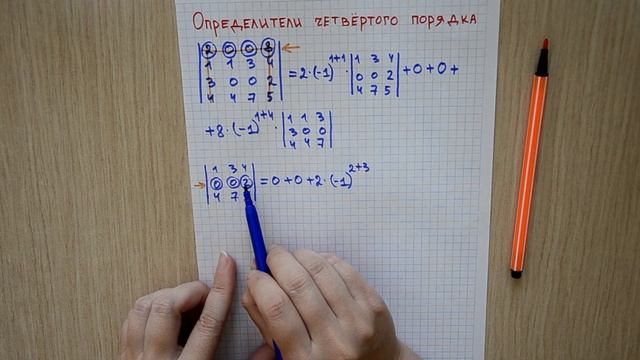 Определители четвёртого порядка
|2 0 0 8|
|1 1 3 4|
|3 0 0 2|
|4 4 7 5|
= 2 · (-1)^{1+1} · |1 3 4|
|0 0 2|
|4 7 5| + 0 + 0 +
+ 8 · (-1)^{1+4} · |1 1 3|
|3 0 0|
|4 4 7|
|1 3 4|
|0 0 2|
|4 7
= 0 + 0 + 2 · (-1)^{2+3}